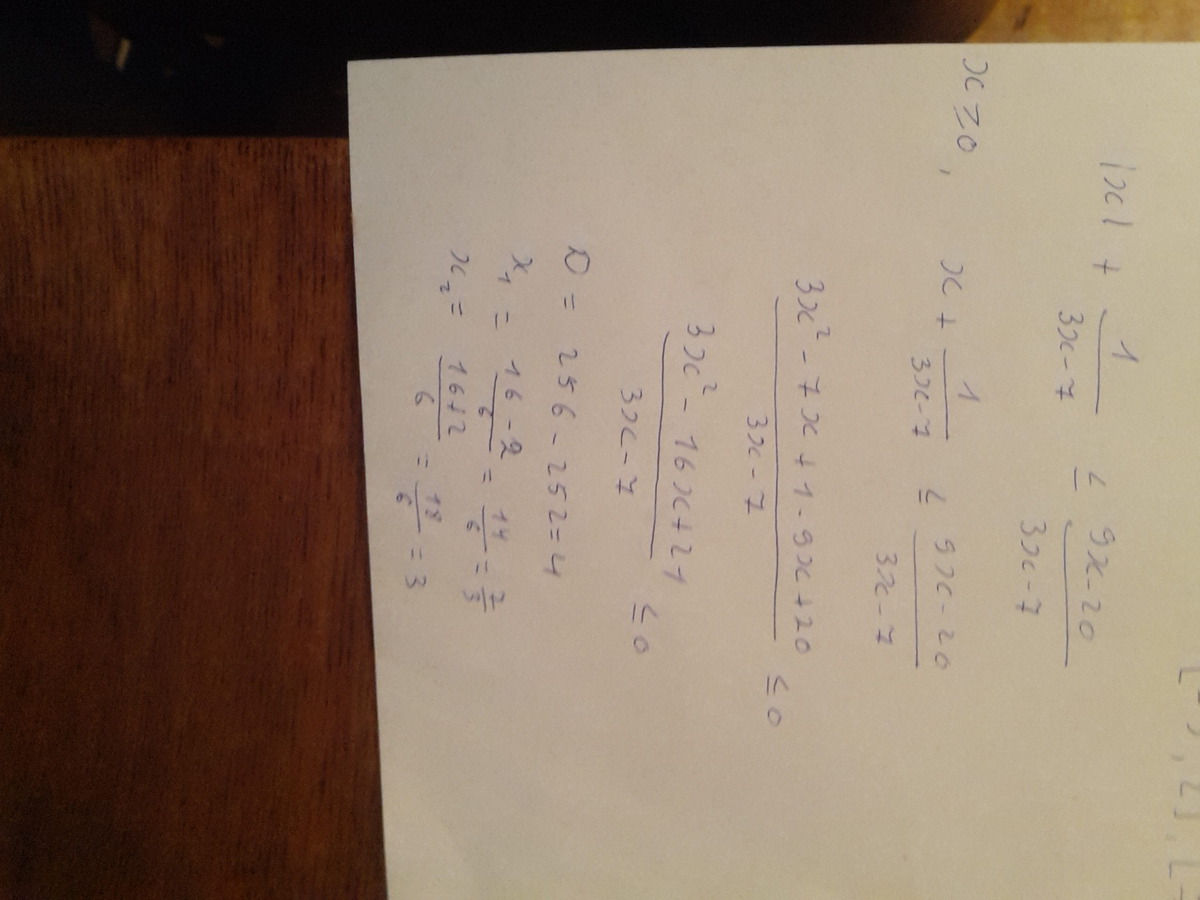 |x| + 1/(3x-7) ≤ (9x-20)/(3x-7)
x ≥ 0, x + 1/(3x-7) ≤ (9x-20)/(3x-7)
(3x² - 7x + 1 - 9x + 20)/(3x-7) ≤ 0
(3x² - 16x + 21)/(3x-7) ≤ 0
D = 256 - 252 = 4
x₁ = (16-2)/6 = 14/6 = 7/3
x₂ = (16+2)/6 = 18/6 = 3